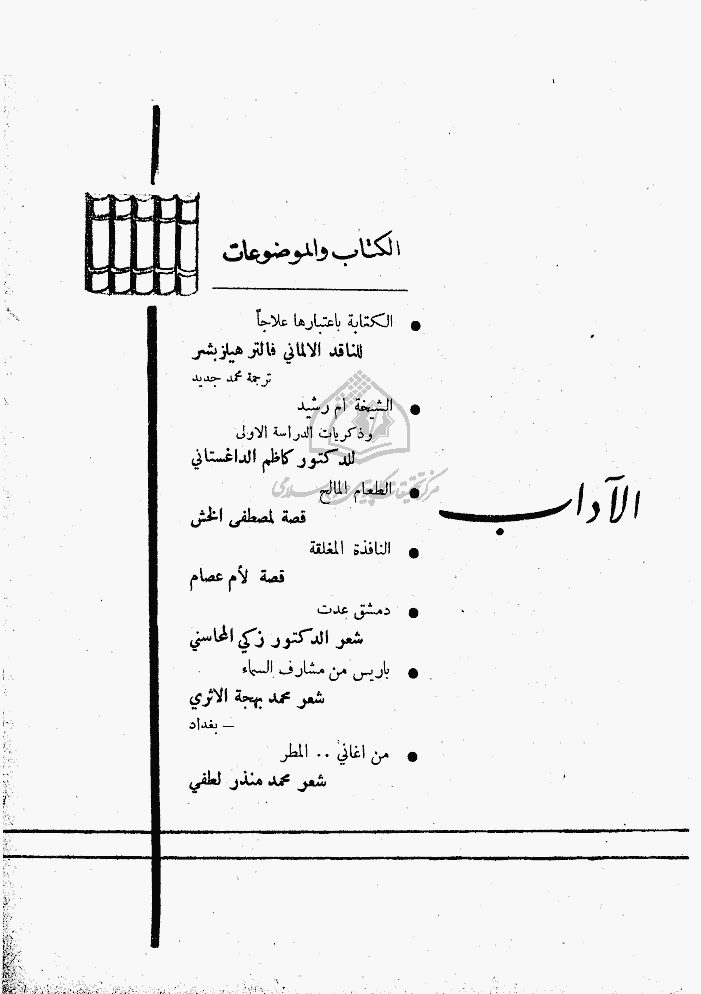 الكتاب والموضوعات
● الكتابة باعتبارها علاجاً
للناقد الالماني فالتر هيلزبشر
ترجمة محمد جديد
● الشيخة ام رشيد
وذكريات الدراسة الاولى
للدكتور كاظم الداغستاني
● الطعام المالح
قصة لمصطفى الخش
● النافذة المغلقة
قصة لأم عصام
● دمشق عدت
شعر الدكتور زكي المحاسني
● باريس من مشارف السماء
شعر محمد بهجة الاثري
– بغداد
● من اغاني .. المطر
شعر محمد منذر لطفي
الآداب